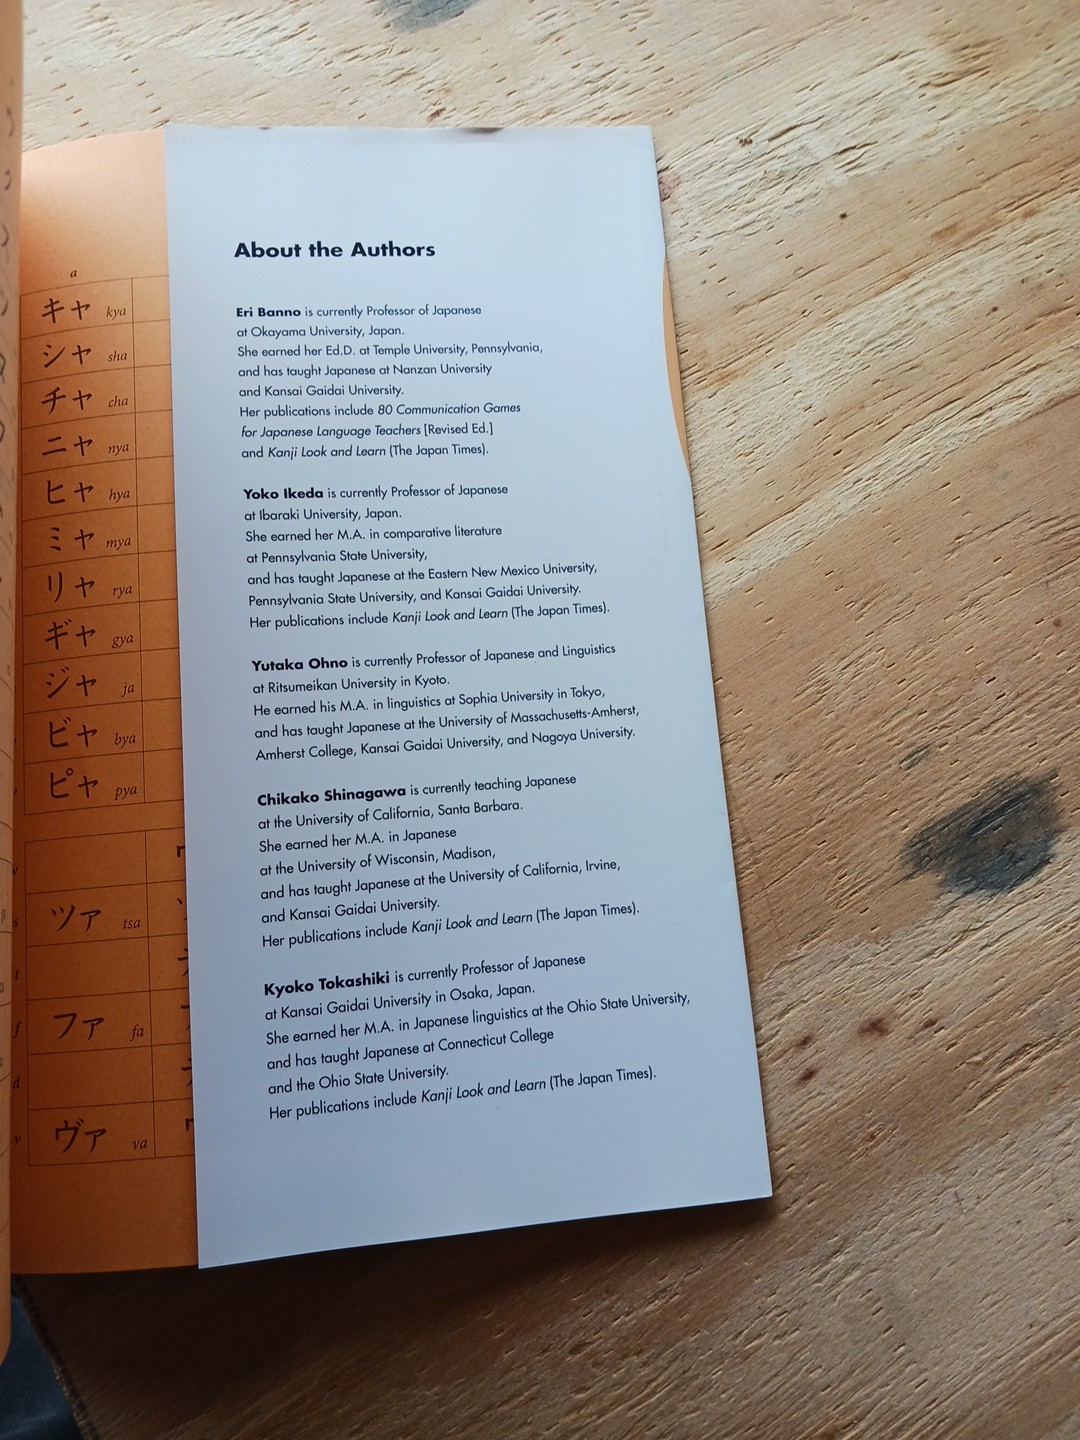 a
キャ kya
シャ sha
チャ cha
ニャ nya
ヒャ hya
ミャ mya
リャ rya
ギャ gya
ジャ ja
ビャ bya
ピャ pya
ツァ tsa
ファ fa
ヴァ va
About the Authors
Eri Banno is currently Professor of Japanese
at Okayama University, Japan.
She earned her Ed.D. at Temple University, Pennsylvania,
and has taught Japanese at Nanzan University
and Kansai Gaidai University.
Her publications include 80 Communication Games
for Japanese Language Teachers [Revised Ed.]
and Kanji Look and Learn (The Japan Times).
Yoko Ikeda is currently Professor of Japanese
at Ibaraki University, Japan.
She earned her M.A. in comparative literature
at Pennsylvania State University,
and has taught Japanese at the Eastern New Mexico University,
Pennsylvania State University, and Kansai Gaidai University.
Her publications include Kanji Look and Learn (The Japan Times).
Yutaka Ohno is currently Professor of Japanese and Linguistics
at Ritsumeikan University in Kyoto.
He earned his M.A. in linguistics at Sophia University in Tokyo,
and has taught Japanese at the University of Massachusetts-Amherst,
Amherst College, Kansai Gaidai University, and Nagoya University.
Chikako Shinagawa is currently teaching Japanese
at the University of California, Santa Barbara.
She earned her M.A. in Japanese
at the University of Wisconsin, Madison,
and has taught Japanese at the University of California, Irvine,
and Kansai Gaidai University.
Her publications include Kanji Look and Learn (The Japan Times).
Kyoko Tokashiki is currently Professor of Japanese
at Kansai Gaidai University in Osaka, Japan.
She earned her M.A. in Japanese linguistics at the Ohio State University,
and has taught Japanese at Connecticut College
and the Ohio State University.
Her publications include Kanji Look and Learn (The Japan Times).